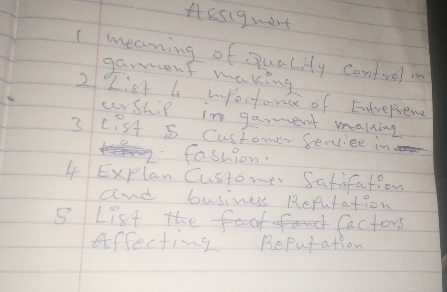 Assigment
1 meaning of quality control in
garment making
2 List 4 importance of Entreprene
urship in garment making
3 List 5 Customer Service in
fashion.
4 Explan Customer Satisfation
and business Reputation
5 List the fact fact factors
Affecting Reputation